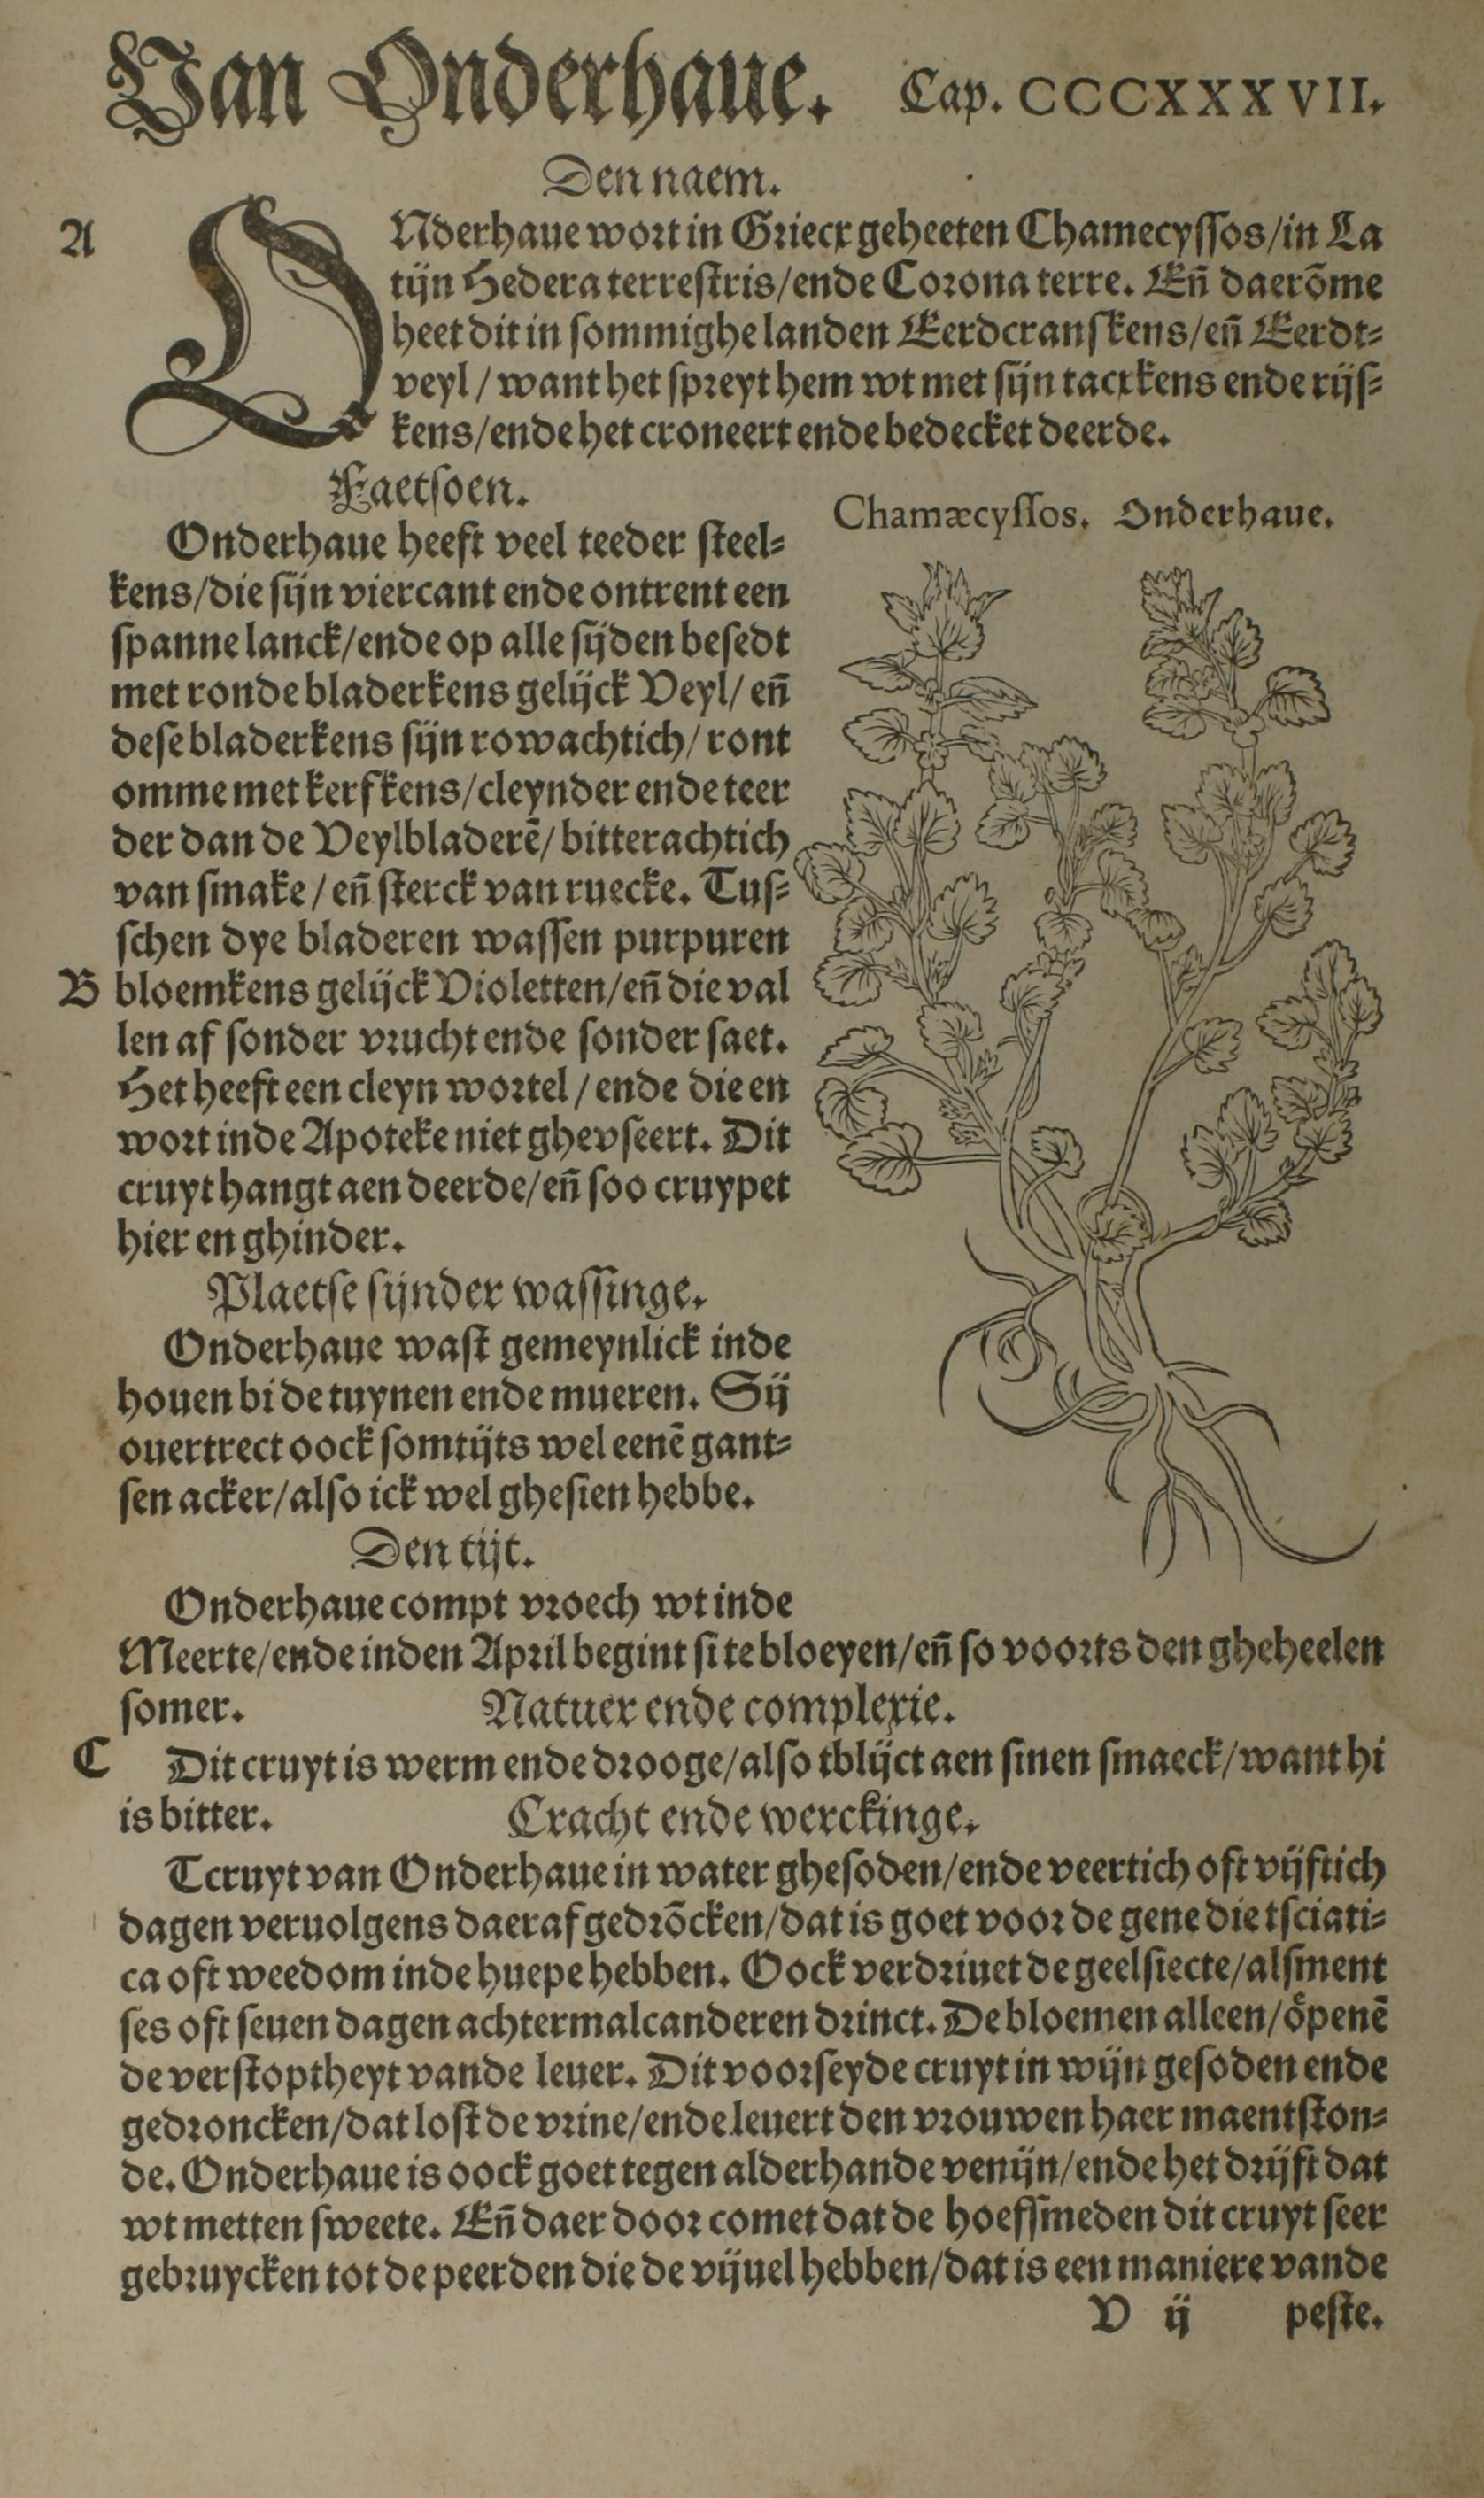 Van Onderhaue. Cap. CCCXXXVII.
Den naem.
A
ONderhaue wort in Griecx geheeten Chamecyssos/in La
tijn Hedera terrestris/ende Corona terre. Eñ daerõme
heet dit in sommighe landen Eerdcranskens/eñ Eerdt=
veyl/want het spreyt hem wt met sijn tacxkens ende rijs=
kens/ende het croneert ende bedecket deerde.
Faetsoen.
Chamæcyssos. Onderhaue.
Onderhaue heeft veel teeder steel=
kens/die sijn viercant ende ontrent een
spanne lanck/ende op alle sijden besedt
met ronde bladerkens gelijck Veyl/eñ
dese bladerkens sijn rowachtich/ront
omme met kerfkens/cleynder ende teer
der dan de Veylbladerẽ/bitterachtich
van smake/eñ sterck van ruecke. Tus=
schen dye bladeren wassen purpuren
B bloemkens gelijck Violetten/eñ die val
len af sonder vrucht ende sonder saet.
Het heeft een cleyn wortel/ende die en
wort inde Apoteke niet ghevseert. Dit
cruyt hangt aen deerde/eñ soo cruypet
hier en ghinder.
Plaetse sijnder wassinge.
Onderhaue wast gemeynlick inde
houen bi de tuynen ende mueren. Sij
ouertrect oock somtijts wel eenẽ gant=
sen acker/also ick wel ghesien hebbe.
Den tijt.
Onderhaue compt vroech wt inde
Meerte/ende inden April begint si te bloeyen/eñ so voorts den gheheelen
somer. Natuer ende complexie.
C Dit cruyt is werm ende drooge/also tblijct aen sinen smaeck/want hi
is bitter. Cracht ende werckinge.
Tcruyt van Onderhaue in water ghesoden/ende veertich oft vijftich
dagen veruolgens daer af gedrõcken/dat is goet voor de gene die tsciati=
ca oft weedom inde huepe hebben. Oock verdriuet de geelsiecte/alsment
ses oft seuen dagen achtermalcanderen drinct. De bloemen alleen/openẽ
de verstoptheyt vande leuer. Dit voorseyde cruyt in wijn gesoden ende
gedroncken/dat lost de vrine/ende leuert den vrouwen haer maentston=
de. Onderhaue is oock goet tegen alderhande venijn/ende het drijft dat
wt metten sweete. Eñ daer door comet dat de hoefsmeden dit cruyt seer
gebruycken tot de peerden die de vijuel hebben/dat is een maniere vande
V ij peste.